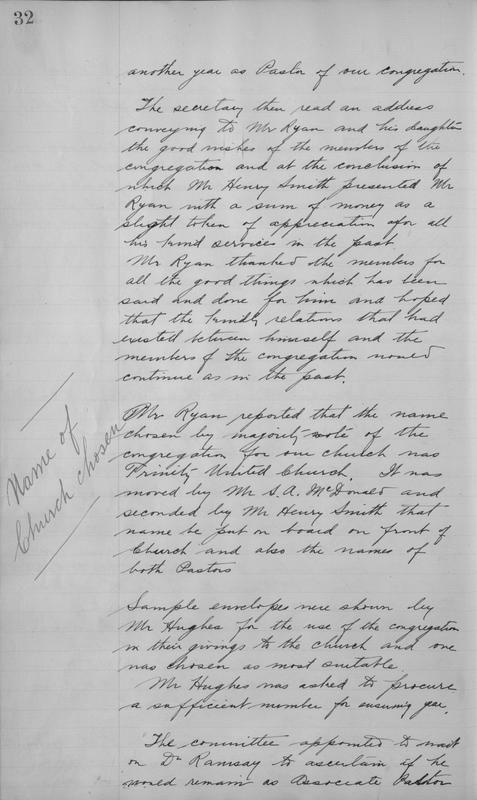 32
another year as Pastor of our congregation.
The secretary then read an address
conveying to Mr Ryan and his daughter
the good wishes of the members of the
congregation and at the conclusion of
which Mr Henry Smith presented Mr
Ryan with a sum of money as a
slight token of appreciation for all
his kind services in the past.
Mr Ryan thanked the members for
all the good things which has been
said and done for him and hoped
that the kindly relations that had
existed between himself and the
members of the congregation would
continue as in the past.
Name of
Church chosen
Mr Ryan reported that the name
chosen by majority vote of the
congregation for our church was
Trinity United Church. It was
moved by Mr S. A. McDonald and
seconded by Mr Henry Smith that
name be put on board on front of
Church and also the names of
both Pastors
Sample envelopes were shown by
Mr Hughes for the use of the congregation
in their givings to the church and one
was chosen as most suitable.
Mr Hughes was asked to procure
a sufficient number for ensuing year.
The committee appointed to wait
on Dr Ramsay to ascertain if he
would remain as Associate Pastor